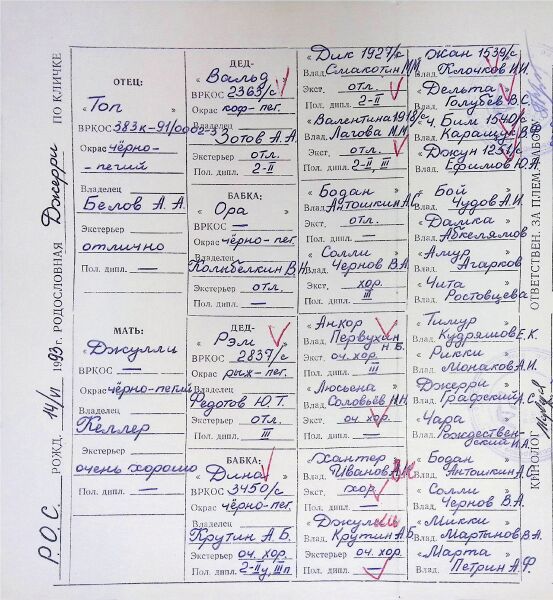 Р.О.С. РОЖД. 14/VI 1993 г. РОДОСЛОВНАЯ Джерри ПО КЛИЧКЕ
ОТЕЦ:
«Топ»
ВРКОС 383к-91/
Окрас чёрно-
-пегий
Владелец
Белов А. А.
Экстерьер
отлично
Пол. дипл. —
МАТЬ:
«Джулли
ВРКОС —
Окрас чёрно-пегий
Владелец
Келлер
Экстерьер
очень хорошо
Пол. дипл. —
ДЕД-
«Вальд»
ВРКОС 2363/с
Окрас коф-пег.
Владелец
Зотов А. А.
Экстерьер отл.
Пол. дипл. 2-II
БАБКА:
«Ора»
ВРКОС —
Окрас чёрно-пег.
Владелец
Колыбелкин В.Н.
Экстерьер отл.
Пол. дипл. —
ДЕД-
«Рэм»
ВРКОС 2837/с
Окрас рыж-пег.
Владелец
Федотов Ю. Т.
Экстерьер отл.
Пол. дипл. III
БАБКА:
«Дина»
ВРКОС 3450/с
Окрас чёрно-пег.
Владелец
Крутин А Б.
Экстерьер оч. хор.
Пол. дипл. 2-II
«Дик 1927/с
Влад. Смакотин М.М.
Экст. отл.
Пол. дипл. 2-II
«Валентина 1918/с
Влад. Лагова М.М.
Экст. отл.
Пол. дипл. 2-II, III
«Бодан»
Влад. Антошкин А.С.
Экст. отл.
Пол. дипл. —
«Солли»
Влад. Чернов В.А.
Экст. хор.
Пол. дипл. III
«Анкор»
Влад. Первухин Н Б.
Экстерьер оч. хор.
Пол. дипл. III
«Люсьена»
Влад. Соловьёв Н.Н.
Экст. оч. хор.
Пол. дипл. —
«Хантер»
Влад. Иванов
Экст. хор.
Пол. дипл. —
«Джулли»
Влад. Крутин А Б.
Экстерьер оч. хор.
Пол. дипл. —
«Жан 1539/с
Влад. Клочков И.И.
«Дельта»
Влад. Голубев В.С.
«Ч. Бим 1540/с
Влад. Каращук В.Ф.
«Джун 1251/с
Влад. Ефимов Ю.А.
«Бой»
Влад. Чудов А.И.
«Дамка»
Влад. Абкелямов
«Амур»
Влад. Агарков
«Чита»
Влад. Ростовцева
«Тимур»
Влад. Кудряшов Е.К.
«Рикки»
Влад. Монаков А.И.
«Джерри»
Влад. Графский А.С.
«Чара»
Влад. Рождествен-
ский И.А.
«Бодан»
Влад. Антошкин А.С.
«Солли»
Влад. Чернов В.А.
«Микки»
Влад. Мартынов В.А.
«Марта»
Влад. Петрин А.Ф.
КИНОЛОГ
ОТВЕТСТВЕН. ЗА ПЛЕМ. РАБОТУ